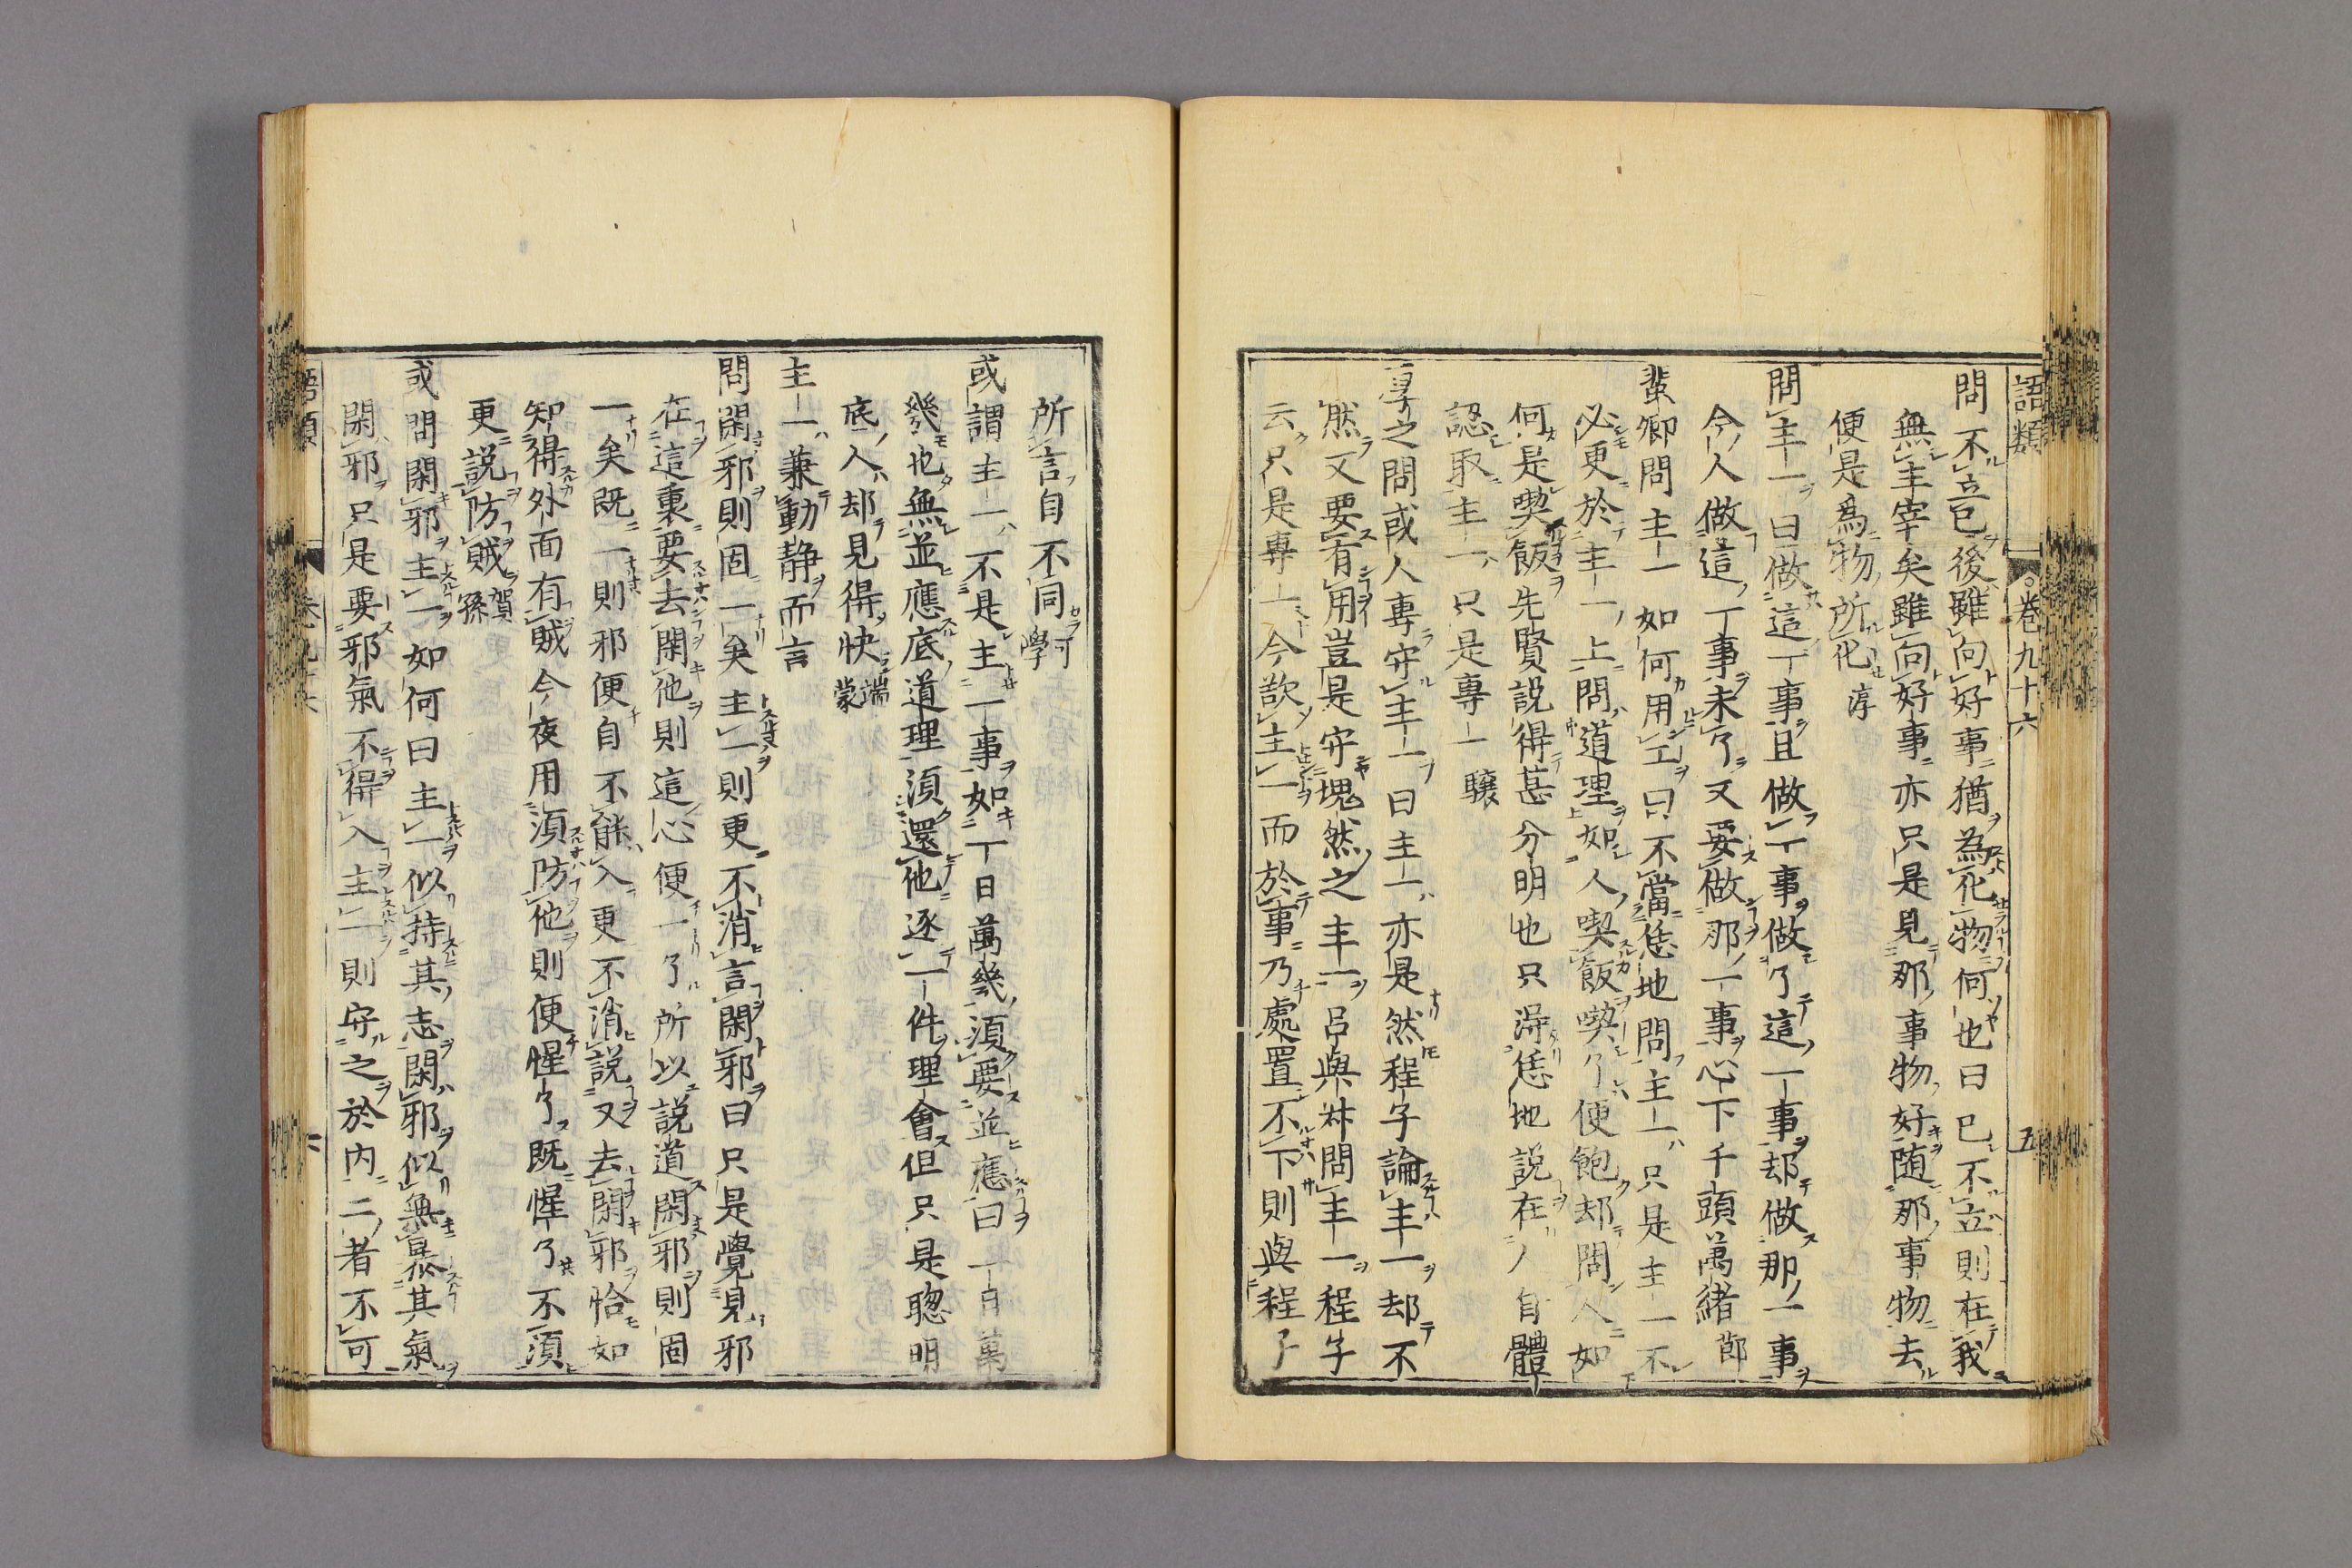 語類 巻九十六 五
問不立己後雖向好事猶為化物何也曰已不立則在我
無主宰矣雖向好事亦只是見那事物好随那事物去
便是為物所化淳
問主一曰做這一事且做一事做了這一事却做那一事
今人做這一事未了又要做那一事心下千頭萬緒節
蜚卿問主一如何用工曰不當恁地問主一只是主一不
必更於主一上問道理如人喫飯喫了便飽却問人如
何是喫飯先賢説得甚分明也只得恁地説在人自體
認取主一只是專一驤
厚之問或人專守主一曰主一亦是然程子論主一却不
然又要有用豈是守塊然之主一呂與叔問主一程子
云只是專一今欲主一而於事乃處置不下則與程子
所言自不同可學
或謂主一不是主一事如一日萬幾須要並應曰一日萬
幾也無並應底道理須還他逐一件理會但只是聰明
底人却見得快端蒙
主一兼動静而言
問閑邪則固一矣主一則更不消言閑邪曰只是覺見邪
在這裏要去閑他則這心便一了所以説道閑邪則固
一矣既一則邪便自不能入更不消説又去閑邪恰如
知得外面有賊今夜用須防他則便惺了既惺了不須
更説防賊賀孫
或問閑邪主一如何曰主一似持其志閑邪似無暴其氣
閑邪只是要邪氣不得入主一則守之於内二者不可